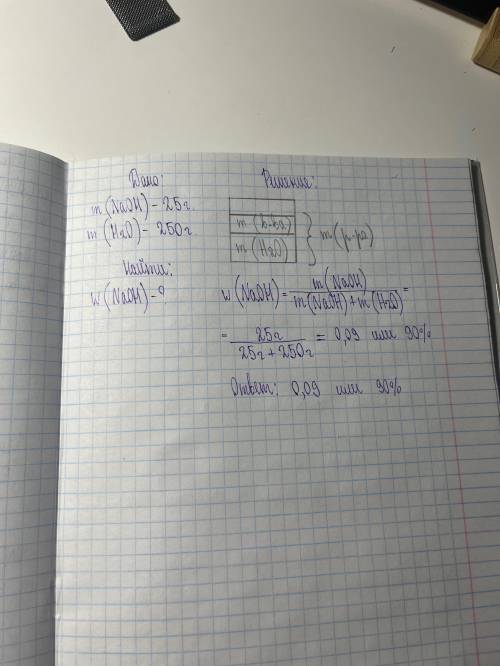 Дано:
m (NaOH) - 25г.
m (H2O) - 250г
Найти:
w (NaOH) - ?
Решение:
m (в-ва)
m (H2O)
m (р-ра)
w (NaOH) = m (NaOH) / m (NaOH) + m (H2O) =
= 25г / 25г + 250г = 0,09 или 90%
Ответ: 0,09 или 90%